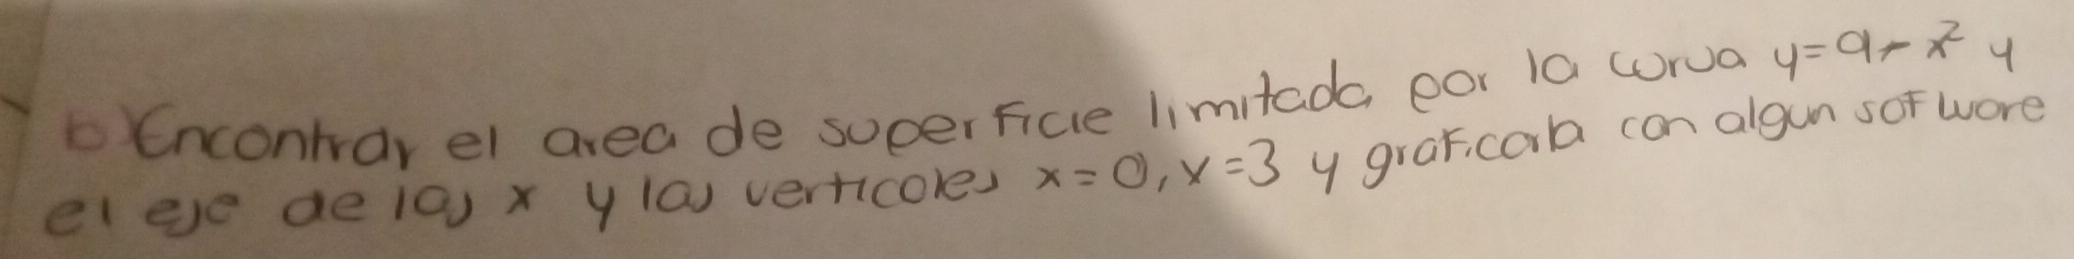 b) Encontrar el area de superficie limitada por la curva y=9-x² y
el eje de las x y las verticales x=0, x=3 y graficarla con algun sofware